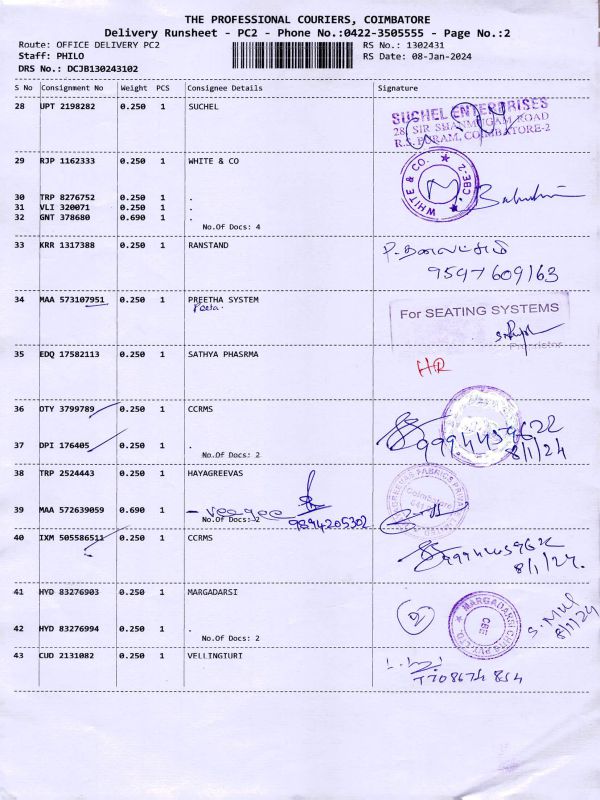 THE PROFESSIONAL COURIERS, COIMBATORE
Delivery Runsheet - PC2 - Phone No.:0422-3505555 - Page No.:2
Route: OFFICE DELIVERY PC2 RS No.: 1302431
Staff: PHILO RS Date: 08-Jan-2024
DRS No.: DCJB130243102
S No Consignment No Weight PCS Consignee Details Signature
28 UPT 2198282 0.250 1 SUCHEL
SUCHEL ENTERPRISES
28, SIR SHANMUGAM ROAD
R.S. PURAM, COIMBATORE-2
29 RJP 1162333 0.250 1 WHITE & CO
WHITE & CO. CBE-2
30 TRP 8276752 0.250 1 .
31 VLI 320071 0.250 1 .
32 GNT 378680 0.690 1 .
No.Of Docs: 4
33 KRR 1317388 0.250 1 RANSTAND
9597609163
34 MAA 573107951 0.250 1 PREETHA SYSTEM
For SEATING SYSTEMS
Proprietor
35 EDQ 17582113 0.250 1 SATHYA PHASRMA
HR
36 OTY 3799789 0.250 1 CCRMS
37 DPI 176405 0.250 1 .
No.Of Docs: 2
9994459622
8/1/24
38 TRP 2524443 0.250 1 HAYAGREEVAS
39 MAA 572639059 0.690 1 .
No.Of Docs: 2
9894205302
Coimbatore
40 IXM 505586511 0.250 1 CCRMS
9994459622
8/1/24.
41 HYD 83276903 0.250 1 MARGADARSI
2
MARGADARSI CHITS PVT. LTD.
CBE
8/1/24
42 HYD 83276994 0.250 1 .
No.Of Docs: 2
43 CUD 2131082 0.250 1 VELLINGIURI